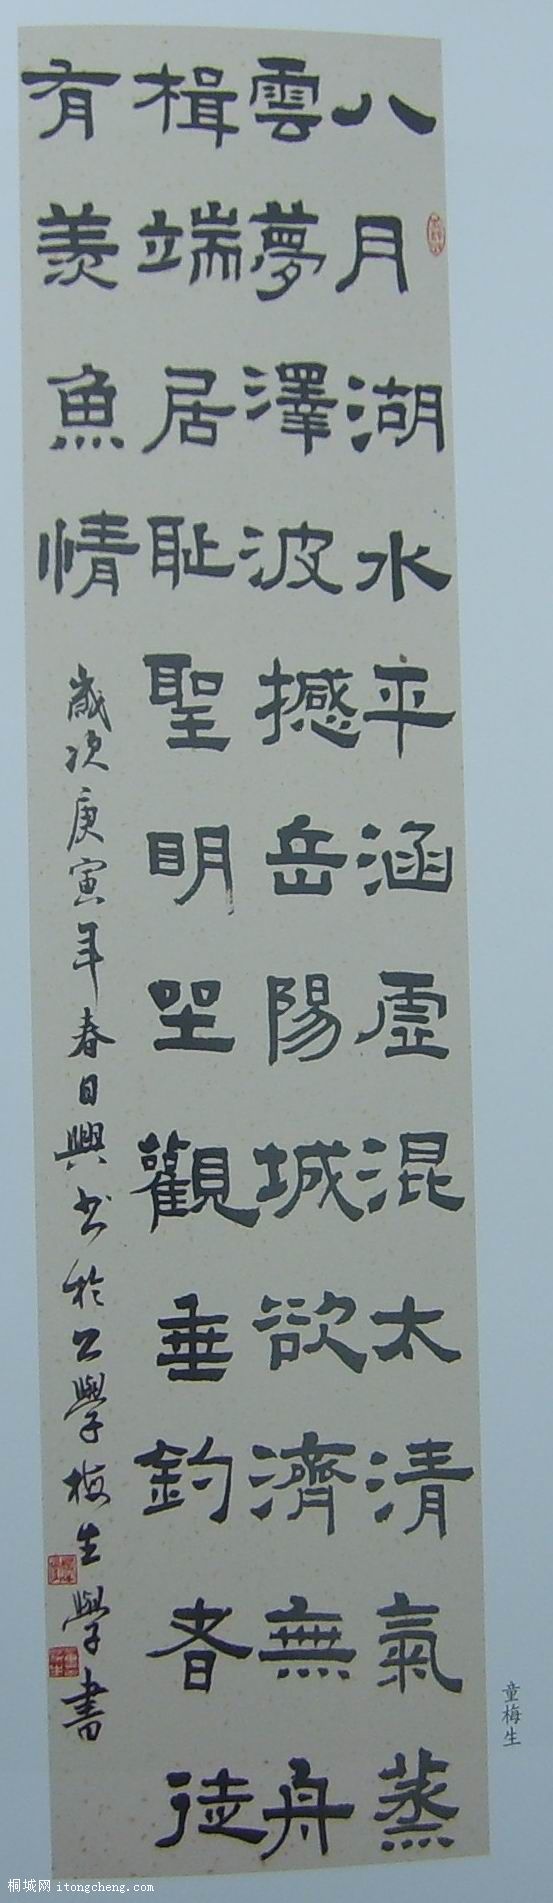 八月湖水平涵虛混太清氣蒸
雲夢澤波撼岳陽城欲濟無舟
楫端居耻聖明坐觀垂釣者徒
有羨魚情
歲次庚寅年春日興书於學梅生學書
童梅生
桐城网 itongcheng.com